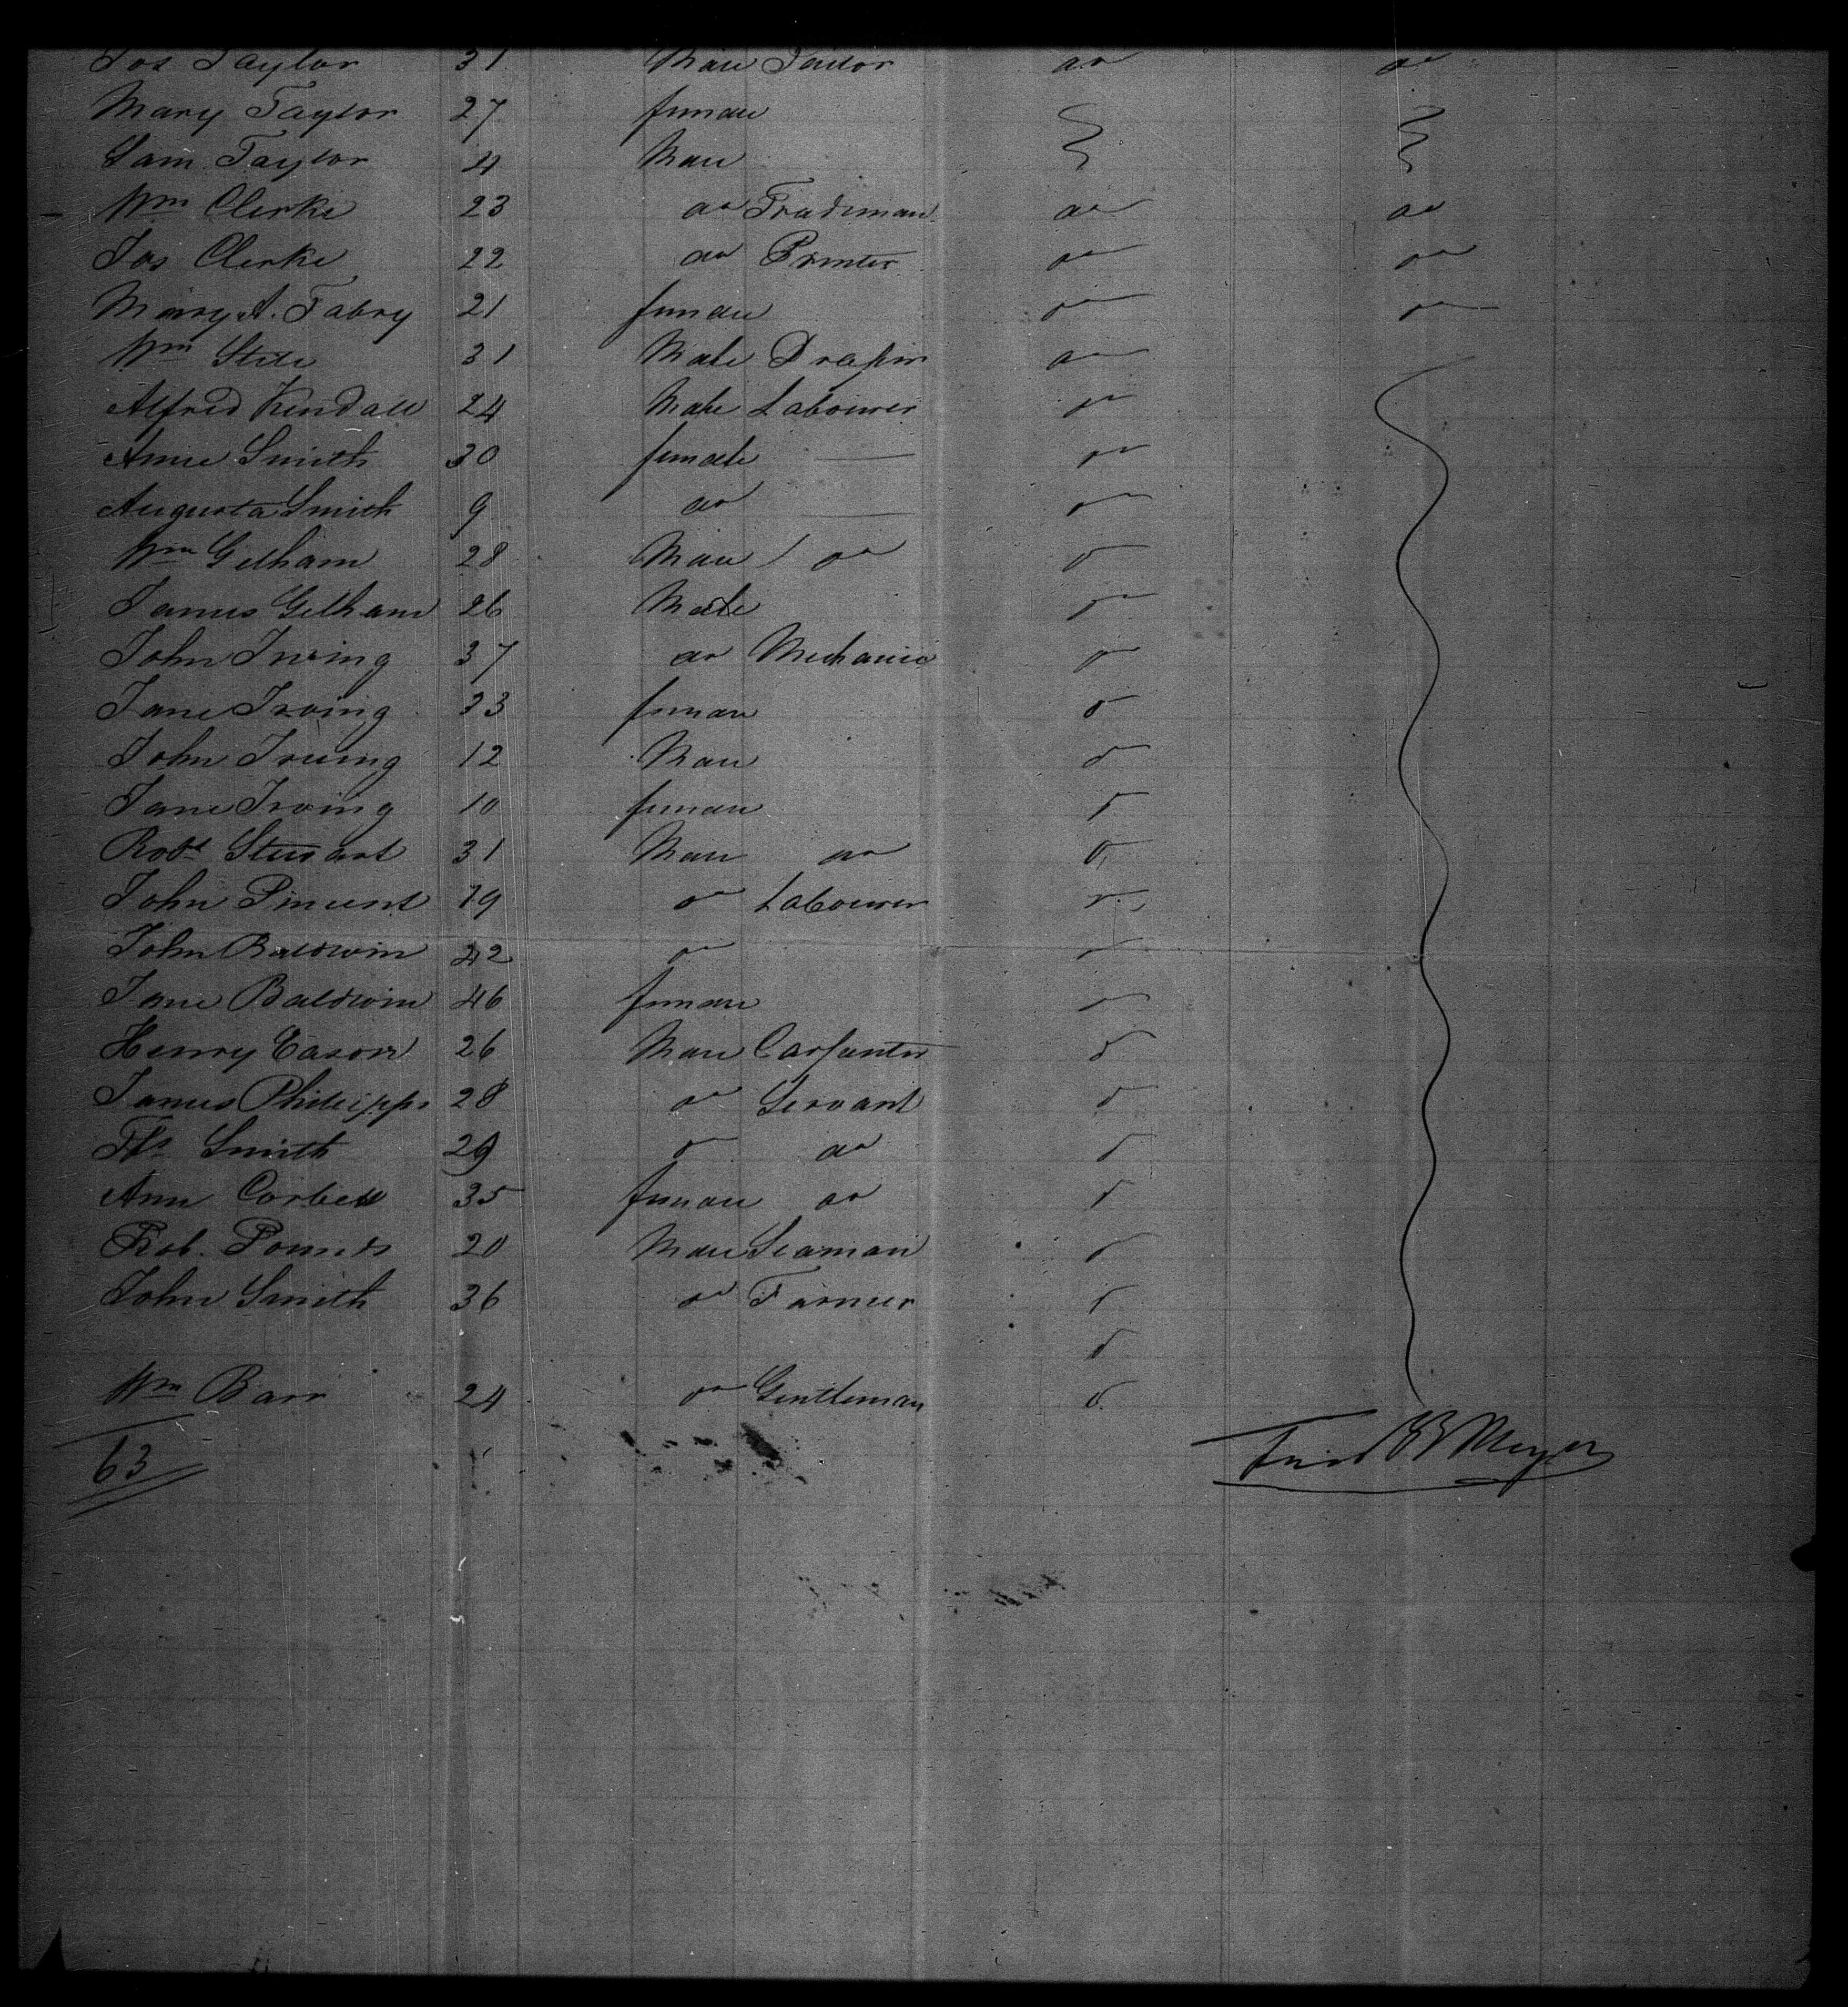 Jos Taylor 31 Male Tailor do do
Mary Taylor 27 female
Sam Taylor 4 Male
Wm Clerke 23 do Tradesman do do
Jos Clerke 22 do Printer do do
Mary A. Fabry 21 female do do
Wm Stele 31 Male Draper do
Alfred Kendall 24 Male Labourer do
Annie Smith 30 female — do
Augusta Smith 9 do — do
Wm Gelham 28 Male / do do
James Gelham 26 Male do
John Irving 37 do Mechanic do
Jane Irving 33 female do
John Irving 12 Male do
Jane Irving 10 female do
Robt Stewart 31 Male do do
John Pincent 19 do Labourer do
John Baldwin 42 do do
Jane Baldwin 46 female do
Henry Eason 26 Male Carpenter do
James Philipps 28 do Servant do
Ths Smith 29 do do do
Ann Corbell 35 female do do
Rob. 20 Male Seaman do
John Smith 36 do Farmer do
do
Wm Barr 24 do Gentleman do
63 Fred Meyer